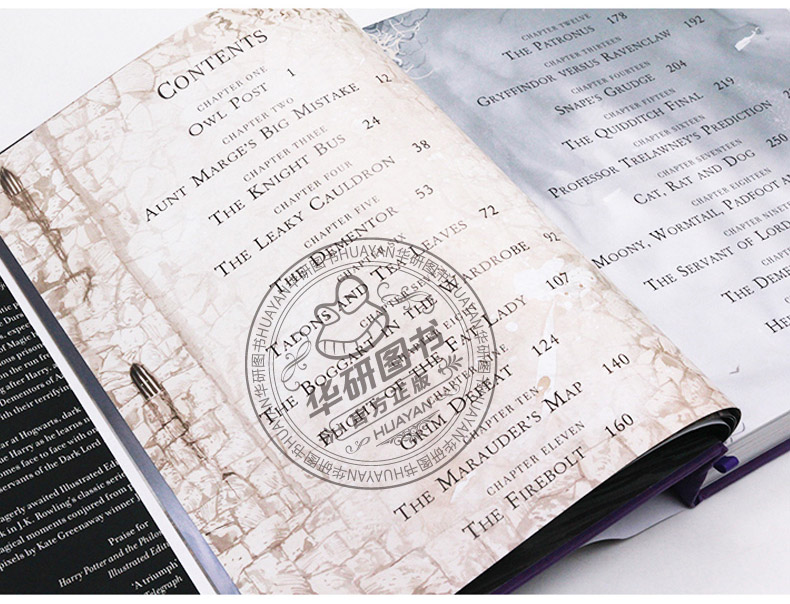 CONTENTS
CHAPTER ONE
OWL POST 1
CHAPTER TWO
AUNT MARGE'S BIG MISTAKE 12
CHAPTER THREE
THE KNIGHT BUS 24
CHAPTER FOUR
THE LEAKY CAULDRON 38
CHAPTER FIVE
THE DEMENTOR 53
CHAPTER SIX
TALONS AND TEA LEAVES 72
CHAPTER SEVEN
THE BOGGART IN THE WARDROBE 92
CHAPTER EIGHT
FLIGHT OF THE FAT LADY 107
CHAPTER NINE
GRIM DEFEAT 124
CHAPTER TEN
THE MARAUDER'S MAP 140
CHAPTER ELEVEN
THE FIREBOLT 160
CHAPTER TWELVE
THE PATRONUS 178
CHAPTER THIRTEEN
GRYFFINDOR VERSUS RAVENCLAW 192
CHAPTER FOURTEEN
SNAPE'S GRUDGE 204
CHAPTER FIFTEEN
THE QUIDDITCH FINAL 219
CHAPTER SIXTEEN
PROFESSOR TRELAWNEY'S PREDICTION
CHAPTER SEVENTEEN
CAT, RAT AND DOG 250
CHAPTER EIGHTEEN
MOONY, WORMTAIL, PADFOOT
CHAPTER
THE SERVANT OF LORD
CHAPTER
THE
ar at Hogwarts, dark
ue Harry as he learns
omes face to face with
servants of the Dark Lord
agerly awaited Illustrated
k in J.K. Rowling's classic
agical moments conjured from
pixels by Kate Greenaway winner
Praise for
Harry Potter and the
Illustrated
'A triumph'
Telegraph
华研图书HUAYAN华研图书HUAYAN华研图书HUAYAN华研图书
华研图书
官方正版
HUAYAN